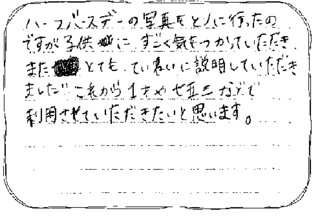 ハーフバースデーの写真をとりに行ったの
ですが子供に すごく気をつかっていただき
また とても ていねいに説明していただき
ました。これから1才や七五三などで
利用させていただきたいと思います。